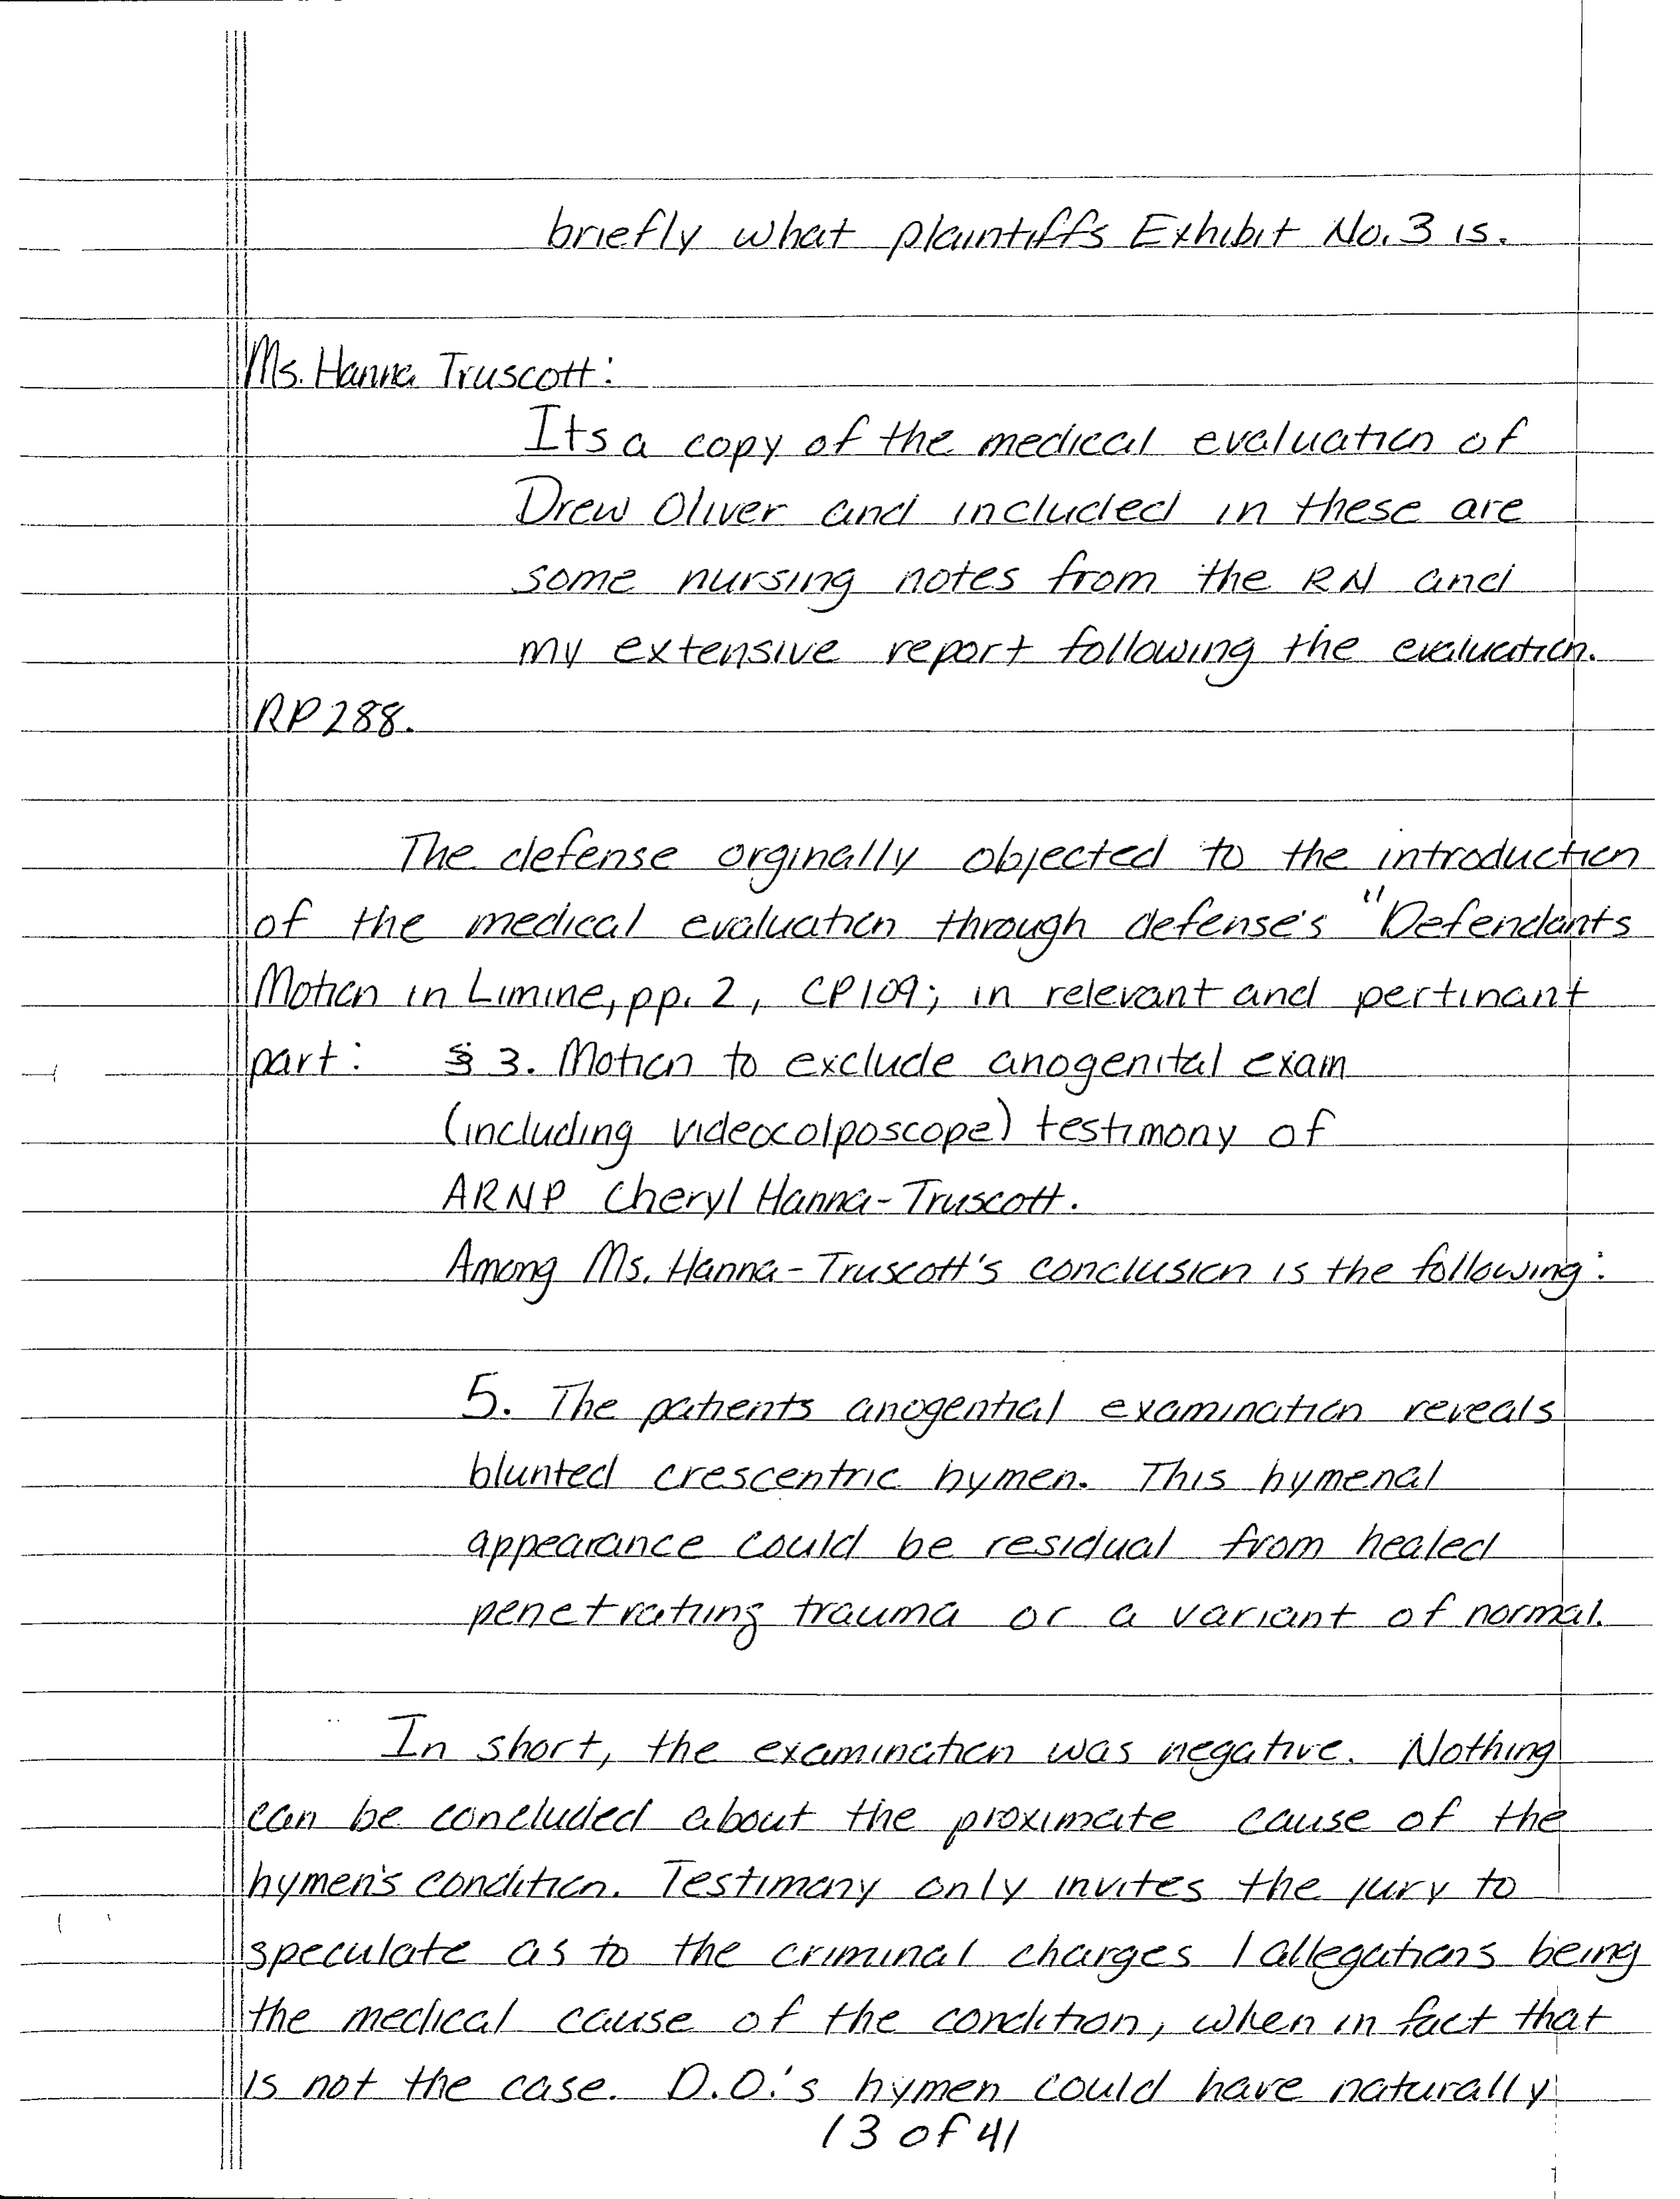 briefly what plaintiffs Exhibit No. 3 is.
Ms. Hanna Truscott:
Its a copy of the medical evaluation of
Drew Oliver and included in these are
some nursing notes from the RN and
my extensive report following the evaluation.
RP 288.
The defense orginally objected to the introduction
of the medical evaluation through defense's "Defendants
Motion in Limine, pp. 2, CP109; in relevant and pertinant
part: § 3. Motion to exclude anogenital exam
(including videocolposcope) testimony of
ARNP Cheryl Hanna-Truscott.
Among Ms. Hanna-Truscott's conclusion is the following:
5. The patients anogential examination reveals
blunted crescentric hymen. This hymenal
appearance could be residual from healed
penetrating trauma or a variant of normal.
In short, the examination was negative. Nothing
can be concluded about the proximate cause of the
hymen's condition. Testimony only invites the jury to
speculate as to the criminal charges / allegations being
the medical cause of the condition, when in fact that
is not the case. D.O.'s hymen could have naturally
13 of 41